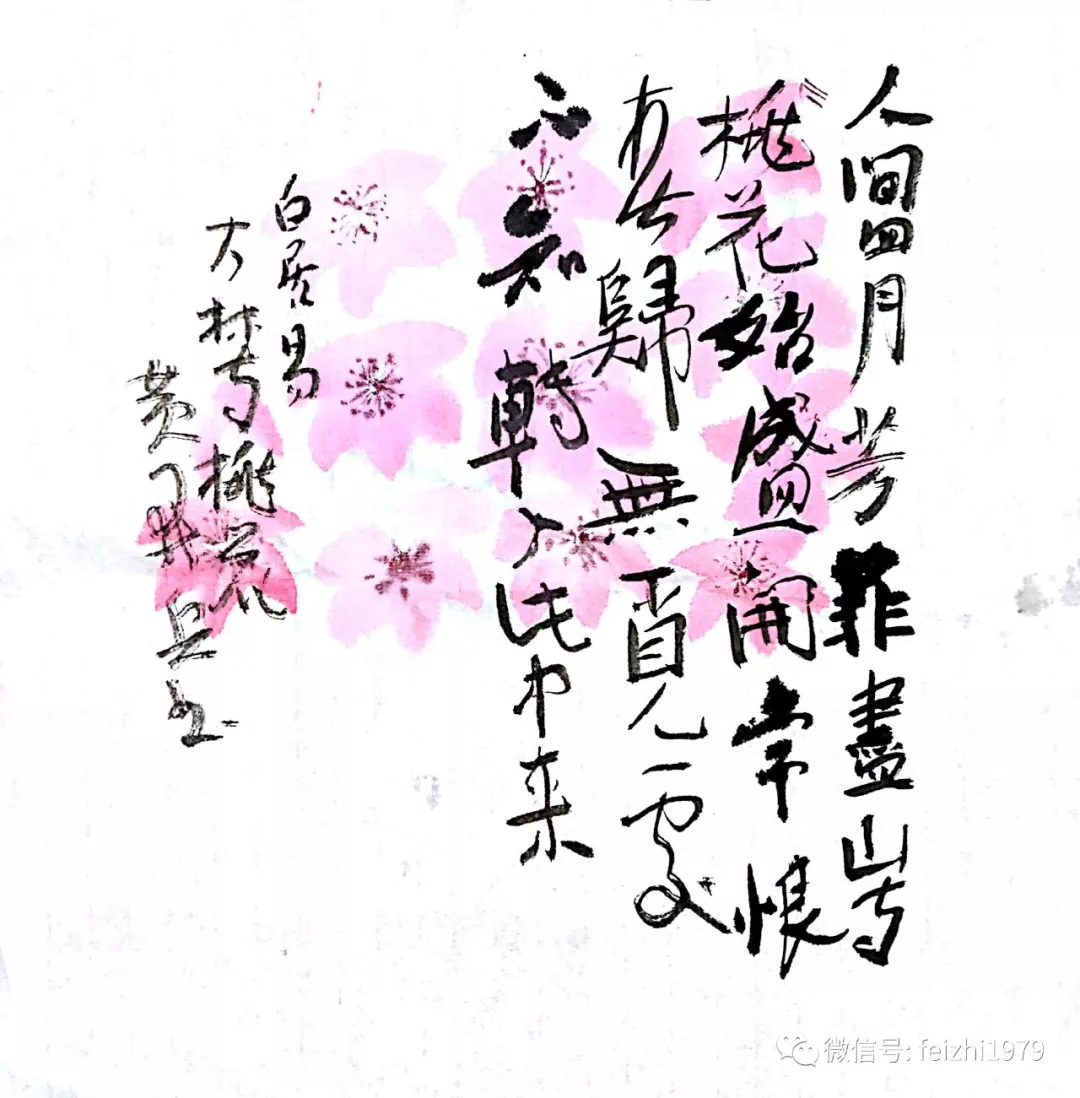 人間四月芳菲盡山寺
桃花始盛開常恨
春歸無覓處
不知轉入此中来
白居易
大林寺桃花
黄
微信号: feizhi1979